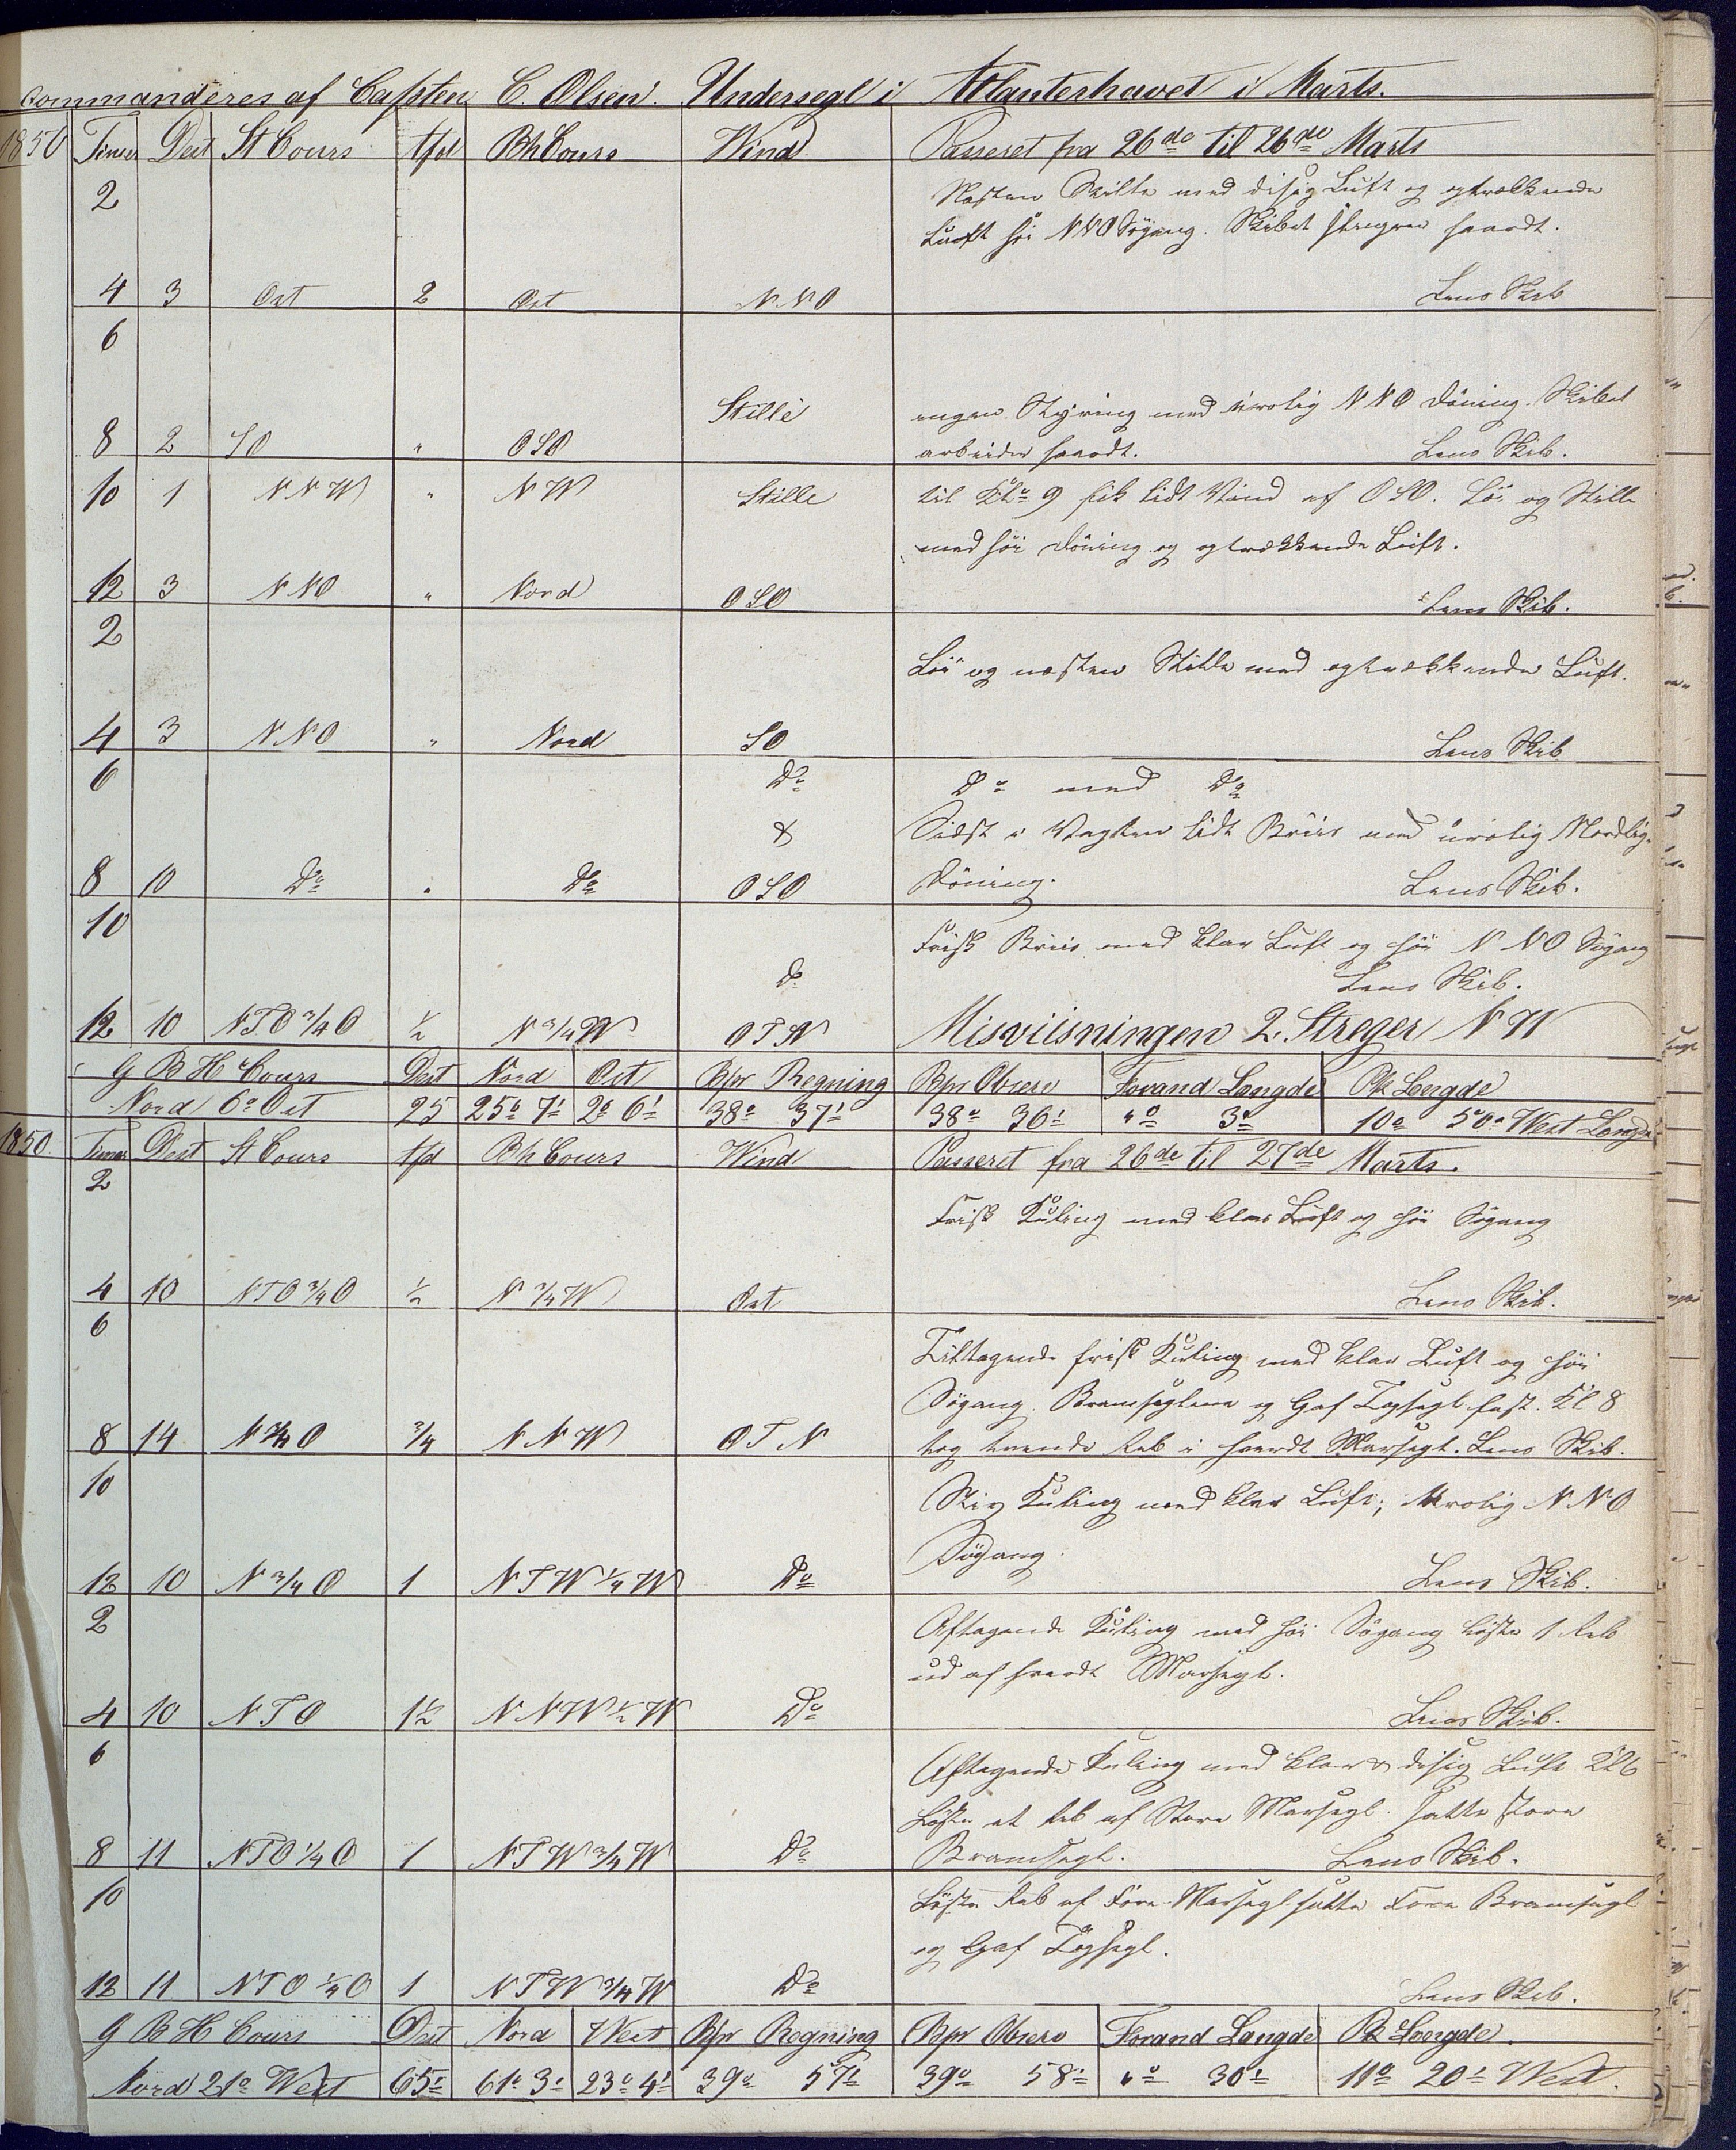 Commanderes af Capten C. Olsen. Undersegl i Atlanterhavet i Marts.
1850 Timer Dest St Cours Afd Bh Cours Wind Passeret fra 26de til 26de Marts
2 Næsten Stille med disig Luft og optrækkende
Luft høi NNO Søgang. Skibet slingrer haardt.
4 3 Ost 2 Ost NNO Lens Skib
6
Stille ingen Styring med urolig NNO Döning. Skibet
8 2 SO " OSO arbeider haardt. Lens Skib.
10 1 NNW " NW Stille til Kl. 9 fik lidt Vind af OSO. Löi og Stille
med høi Döning og optrækkende Luft.
12 3 NNO " Nord OSO Lens Skib.
2
Löi og næsten Stille med optrækkende Luft.
4 3 NNO " Nord SO Lens Skib
6 Do Do med Do
& Sidst i Vagten lidt Briis med urolig Nordlig
8 10 Do " Do OSO Döning. Lens Skib.
10
Frisk Briis med klar Luft og høi NNO Søgang
Do Lens Skib.
12 10 NTO 3/4 O 1/2 N 3/4 W OTN Misviisningen 2 Streger NW
G B H Cours Dest Nord Ost Bpr Regning Bpr Observ Forand Længde Pk Længde
Nord 6° Ost 25 25° 7' 2° 6' 38° 37' 38° 36' "° 3' 10° 50' West Længde
1850 Timer Dest St Cours Afd Bh Cours Wind Passeret fra 26de til 27de Marts.
2
Frisk Kuling med klar Luft og høi Søgang
4 10 NTO 3/4 O 1/2 N 3/4 W Ost Lens Skib.
6
Tiltagende frisk Kuling med klar Luft og høi
Søgang. Bramseglene og Gaf Topsegl fast. Kl 8
8 14 N 3/4 O 3/4 NNW OTN tog tvende Reb i hverdt Marsegl. Lens Skib.
10
Stiv Kuling med klar Luft; urolig NNO
Søgang.
12 10 N 3/4 O 1 NTW 1/4 W Do Lens Skib.
2
Aftagende Kuling med høi Søgang löste 1 Reb
ud af hverdt Marsegl.
4 10 NTO 1 1/2 NNW 1/2 W Do Lens Skib.
6
Aftagende Kuling med klar & disig Luft Kl 6
Löste et Reb af Store Marsegl. satte store
8 11 NTO 1/4 O 1 NTW 3/4 W Do Bramsegl. Lens Skib.
10
Löste Reb af Före Marsegl satte Fore Bramsegl
og Gaf Topsegl.
12 11 NTO 1/4 O 1 NTW 3/4 W Do Lens Skib.
G B H Cours Dest Nord West Bpr Regning Bpr Observ Forand Længde Pk Længde.
Nord 21° West 65' 61° 3' 23° 4' 39° 57' 39° 58' "° 30' 11° 20' West.